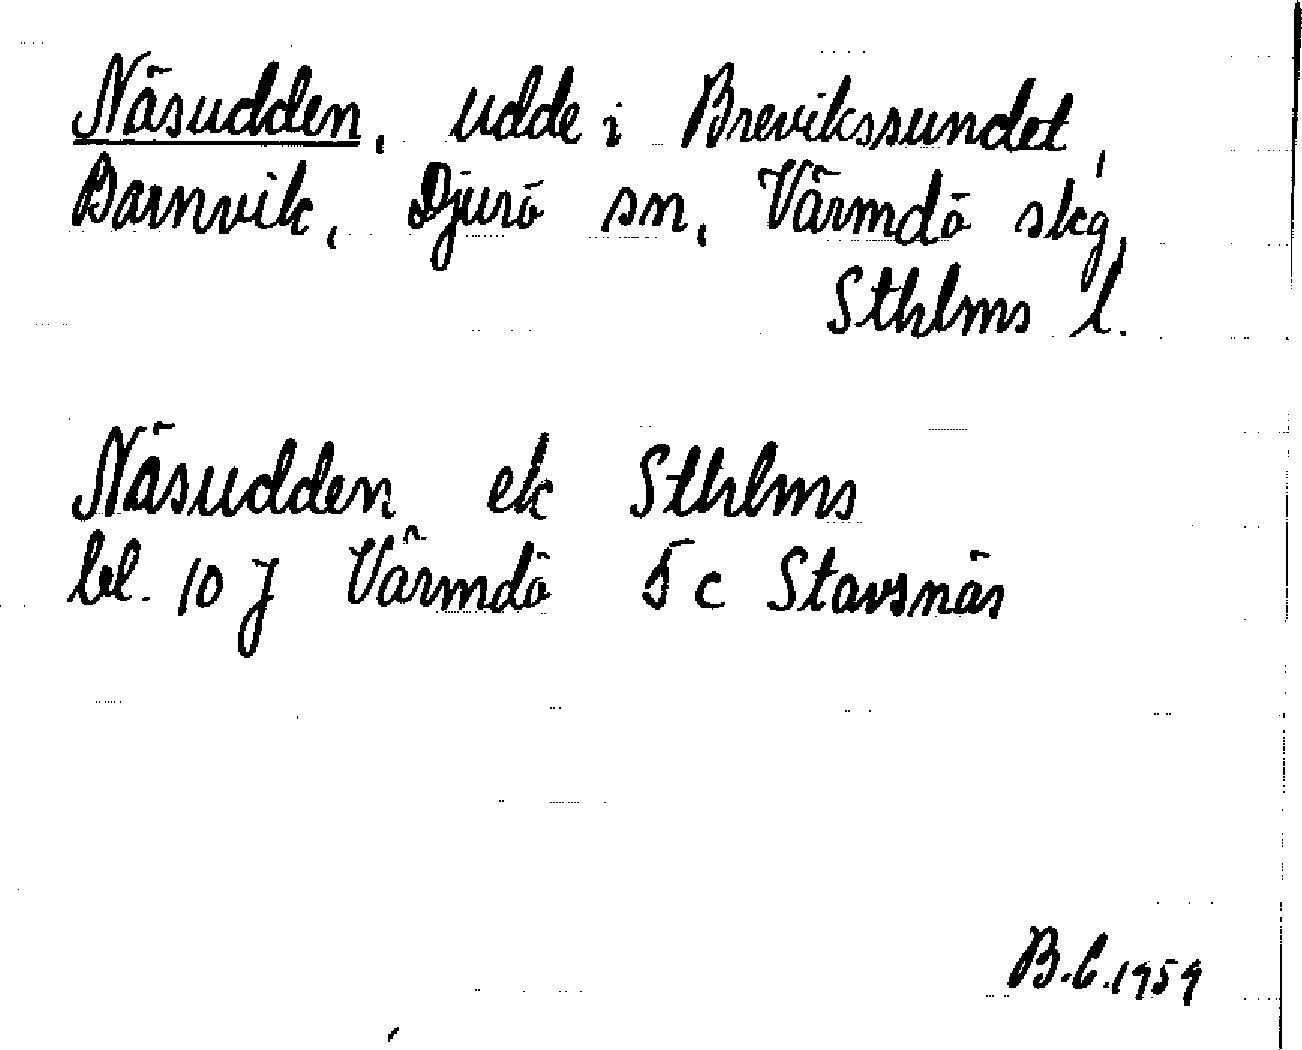 Näsudden, udde i Brevikssundet,
Barnvik, Djurö sn, Värmdö skg,
Sthlms l.
Näsudden ek Sthlms
bl. 10 J Värmdö 5 c Stavsnäs
B.C.1959